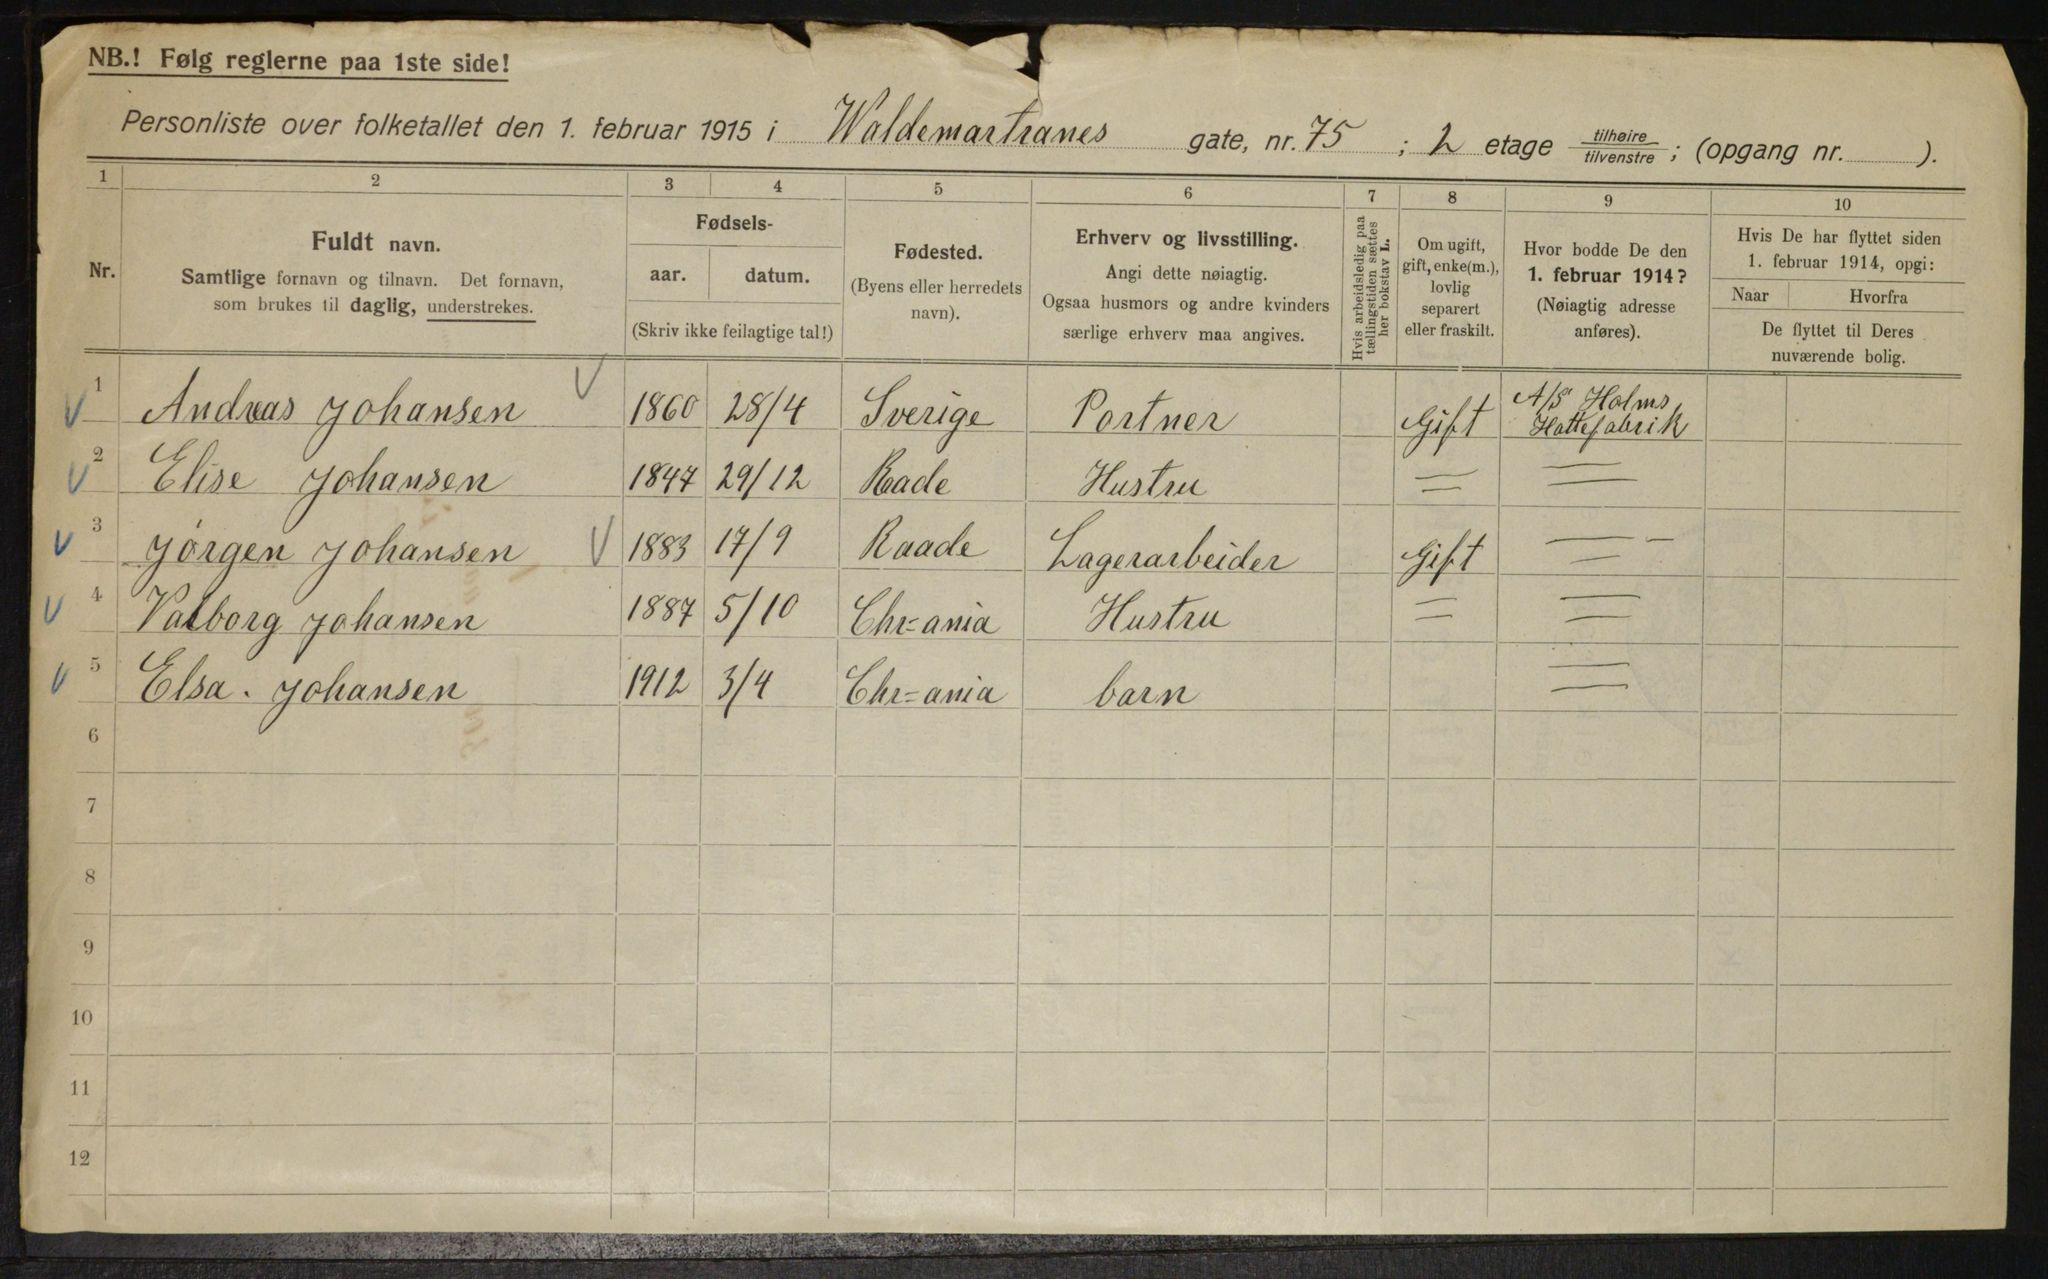 NB.! Følg reglerne paa 1ste side!
Personliste over folketallet den 1. februar 1915 i Waldemartranes gate, nr. 75 ; 2 etage tilhøire/tilvenstre ; (opgang nr. ).
1 2 3 4 5 6 7 8 9 10
Nr.
Fuldt navn.
Samtlige fornavn og tilnavn. Det fornavn,
som brukes til daglig, understrekes.
Fødsels-
aar. datum.
(Skriv ikke feilagtige tal!)
Fødested.
(Byens eller herredets
navn).
Erhverv og livsstilling.
Angi dette nøiagtig.
Ogsaa husmors og andre kvinders
særlige erhverv maa angives.
Hvis arbeidsledig paa
tællingstiden sættes
her bokstav L.
Om ugift,
gift, enke(m.),
lovlig
separert
eller fraskilt.
Hvor bodde De den
1. februar 1914?
(Nøiagtig adresse
anføres).
Hvis De har flyttet siden
1. februar 1914, opgi:
Naar Hvorfra
De flyttet til Deres
nuværende bolig.
1 Andreas Johansen 1860 28/4 Sverige Portner Gift A/S Holms
Hattefabrik
2 Elise Johansen 1847 29/12 Raade Hustru
3 Jørgen Johansen 1883 17/9 Raade Lagerarbeider Gift
4 Valborg Johansen 1887 5/10 Chr=ania Hustru
5 Elsa. Johansen 1912 3/4 Chr=ania barn
6
7
8
9
10
11
12